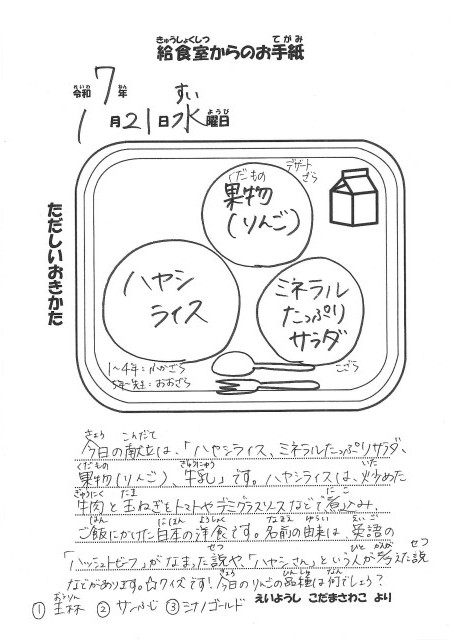 給食室からのお手紙
きゅうしょくしつ てがみ
令和7年
れいわ ねん
1月21日水曜日
すい ようび
ただしいおきかた
くだもの
果物
(りんご)
デザート
ざら
ハヤシ
ライス
ミネラル
たっぷり
サラダ
1~4年:ふかざら
5年~先生:おおざら
こざら
きょう こんだて
今日の献立は、「ハヤシライス、ミネラルたっぷりサラダ、
くだもの ぎゅうにゅう いた
果物(りんご)、牛乳」です。ハヤシライスは、炒めた
ぎゅうにく たま に こ
牛肉と玉ねぎをトマトやデミグラスソースなどで煮込み、
はん にほん ようしょく なまえ ゆらい えいご
ご飯にかけた日本の洋食です。名前の由来は、英語の
せつ ひと かんが せつ
「ハッシュドビーフ」がなまった説や、「ハヤシさん」という人が考えた説
きょう なん
などがあります。☆クイズです!今日のりんごの品種は何でしょう?
おうりん ひんしゅ
①王林 ②サンふじ ③シナノゴールド
えいようし こだまさわこ より